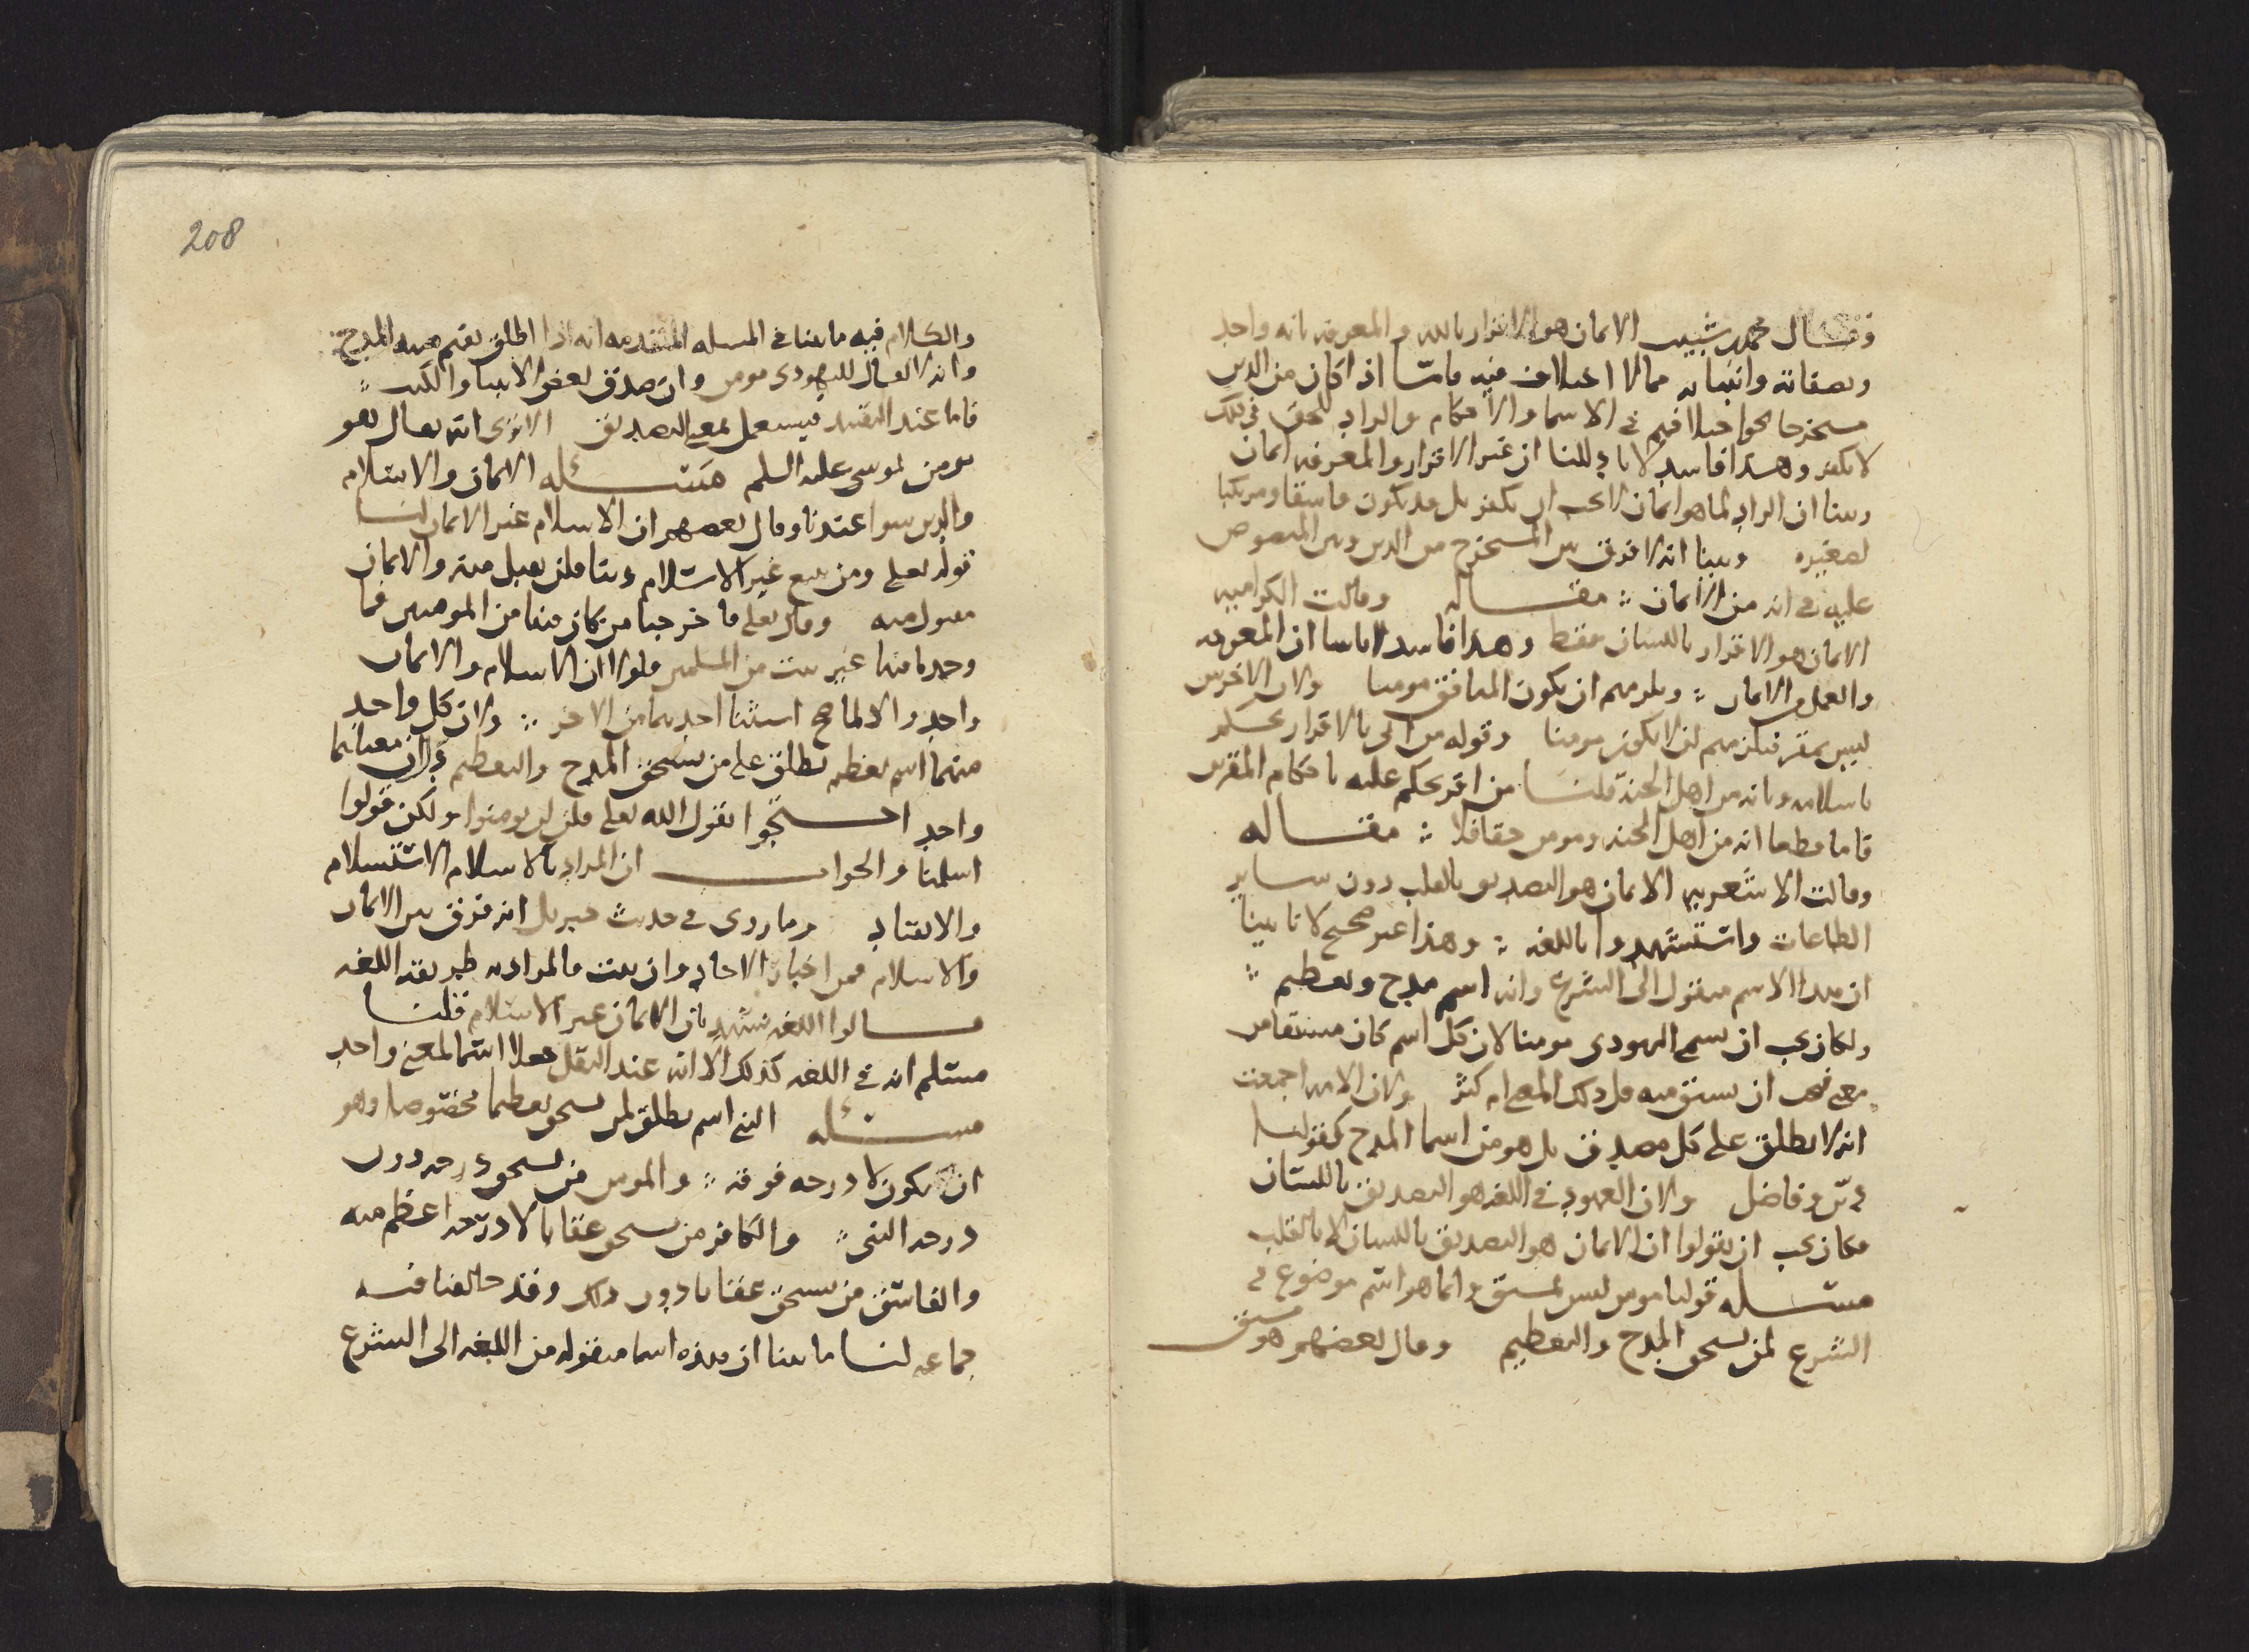 وقال محمد بن شبيب الايمان هو الاقرار بالله والمعرفه بانه واحد
وبصفاته وانبيائه مما لا اختلاف فيه فامّا اذا كان من الدين
مستخرجا نحو اختلافهم في الاسما والاحكام والراد للحق في ذلك
لا يكفر وهذا فاسد لانا دللنا ان غير الاقرار والمعرفه ايمان
وبينا ان الراد لما هو ايمان لا يجب ان يكفر بل قد يكون فاسقا ومرتكبا
لصغيره وبينا انه لا فرق بين المستخرج من الدين وبين المنصوص
عليه في انه من الايمان : مقاله وقالت الكراميه
الايمان هو الاقرار باللسان فقط وهذا فاسد لانا بينا ان المعرفه
والعمل من الايمان : ويلزمهم ان يكون المنافق مومنا ولان الاخرس
ليس بمقر فيلزمهم ان لا يكون مومنا وقوله من اتى بالاقرار نحكم
باسلامه وبانه من اهل الجنة قلنا من اقر يحكم عليه باحكام المقرين
فاما قطعا انه من اهل الجنه ومومن حقا فلا : مقاله
وقالت الاشعريه الايمان هو التصديق بالقلب دون ساير
الطاعات واستشهدوا باللغه : وهذا غير صحيح لانا بينا
ان هذا الاسم منقول الى الشرع وانه اسم مدح وتعظيم :
ولكان يجب ان يسمى اليهودى مومنا لان كل اسم كان مشتقا من
معنى فيجب ان يشتق منه قل ذلك المعنى ام كثر ولان الامه اجمعت
انه لا يطلق على كل مصدق بل هو من اسما المدح كقولنا
ديّن وفاضل ولان المعهود في اللغه هو التصديق باللسان
فكان يجب ان يقولوا ان الايمان هو التصديق باللسان لا بالقلب
مسئله قولنا مومن ليس بمشتق وانما هو اسم موضوع في
الشرع لمن يستحق المدح والتعظيم وقال بعضهم هو مشتق
208
والكلام فيه ما بينا في المسله المتقدمه انه اذا اطلق يفهم منه المدح
وانه لا يقال لليهودى مومن وان صدق بعض الانبيا والكتب :
فاما عند التقييد فيستعمل بمعنى التصديق الا ترى انه يقال هو
يومن بموسى عليه السلم مسئله الايمان والاسلام
والدين سوا عندنا وقال بعضهم ان الاسلام غير الايمان لنا
قوله تعلى ومن يبتغ غير الاسلام دينا فلن يقبل منه والايمان
مقبول منه وقال تعلى فاخرجنا من كان فيها من المومنين فما
وجدنا فيها غير بيت من المسلمين فلولا ان الاسلام والايمان
واحد والا لما صح استثنا احدهما من الاخر : ولان كل واحد
منهما اسم تعظيم يطلق على من يستحق المدح والتعظيم ولان معناهما
واحد احتجوا بقول الله تعلى قل لم تومنوا ولكن قولوا
اسلمنا والجواب ان المراد بالاسلام الاستسلام
والانقياد وما روى في حديث جبريل انه فرق بين الايمان
والاسلام فمن اخبار الاحاد وان ثبت فالمراد به طريقه اللغه
قالوا اللغه تشهد بان الايمان غير الاسلام قلنا
مسلم انه في اللغه كذلك الا انه عند النقل جعلا اسما لمعنى واحد
مسئله النبي اسم يطلق لمن يستحق تعظيما مخصوصا وهو
ان يكون لا درجه فوقه : والمومن من يستحق درجه دون
درجه النبي : والكافر من يستحق عقابا لا درجه اعظم منه
والفاسق من يستحق عقابا دون ذلك وقد خالفنا فيه
جماعه لنا ما بينا ان هذه اسما منقوله من اللغه الى الشرع